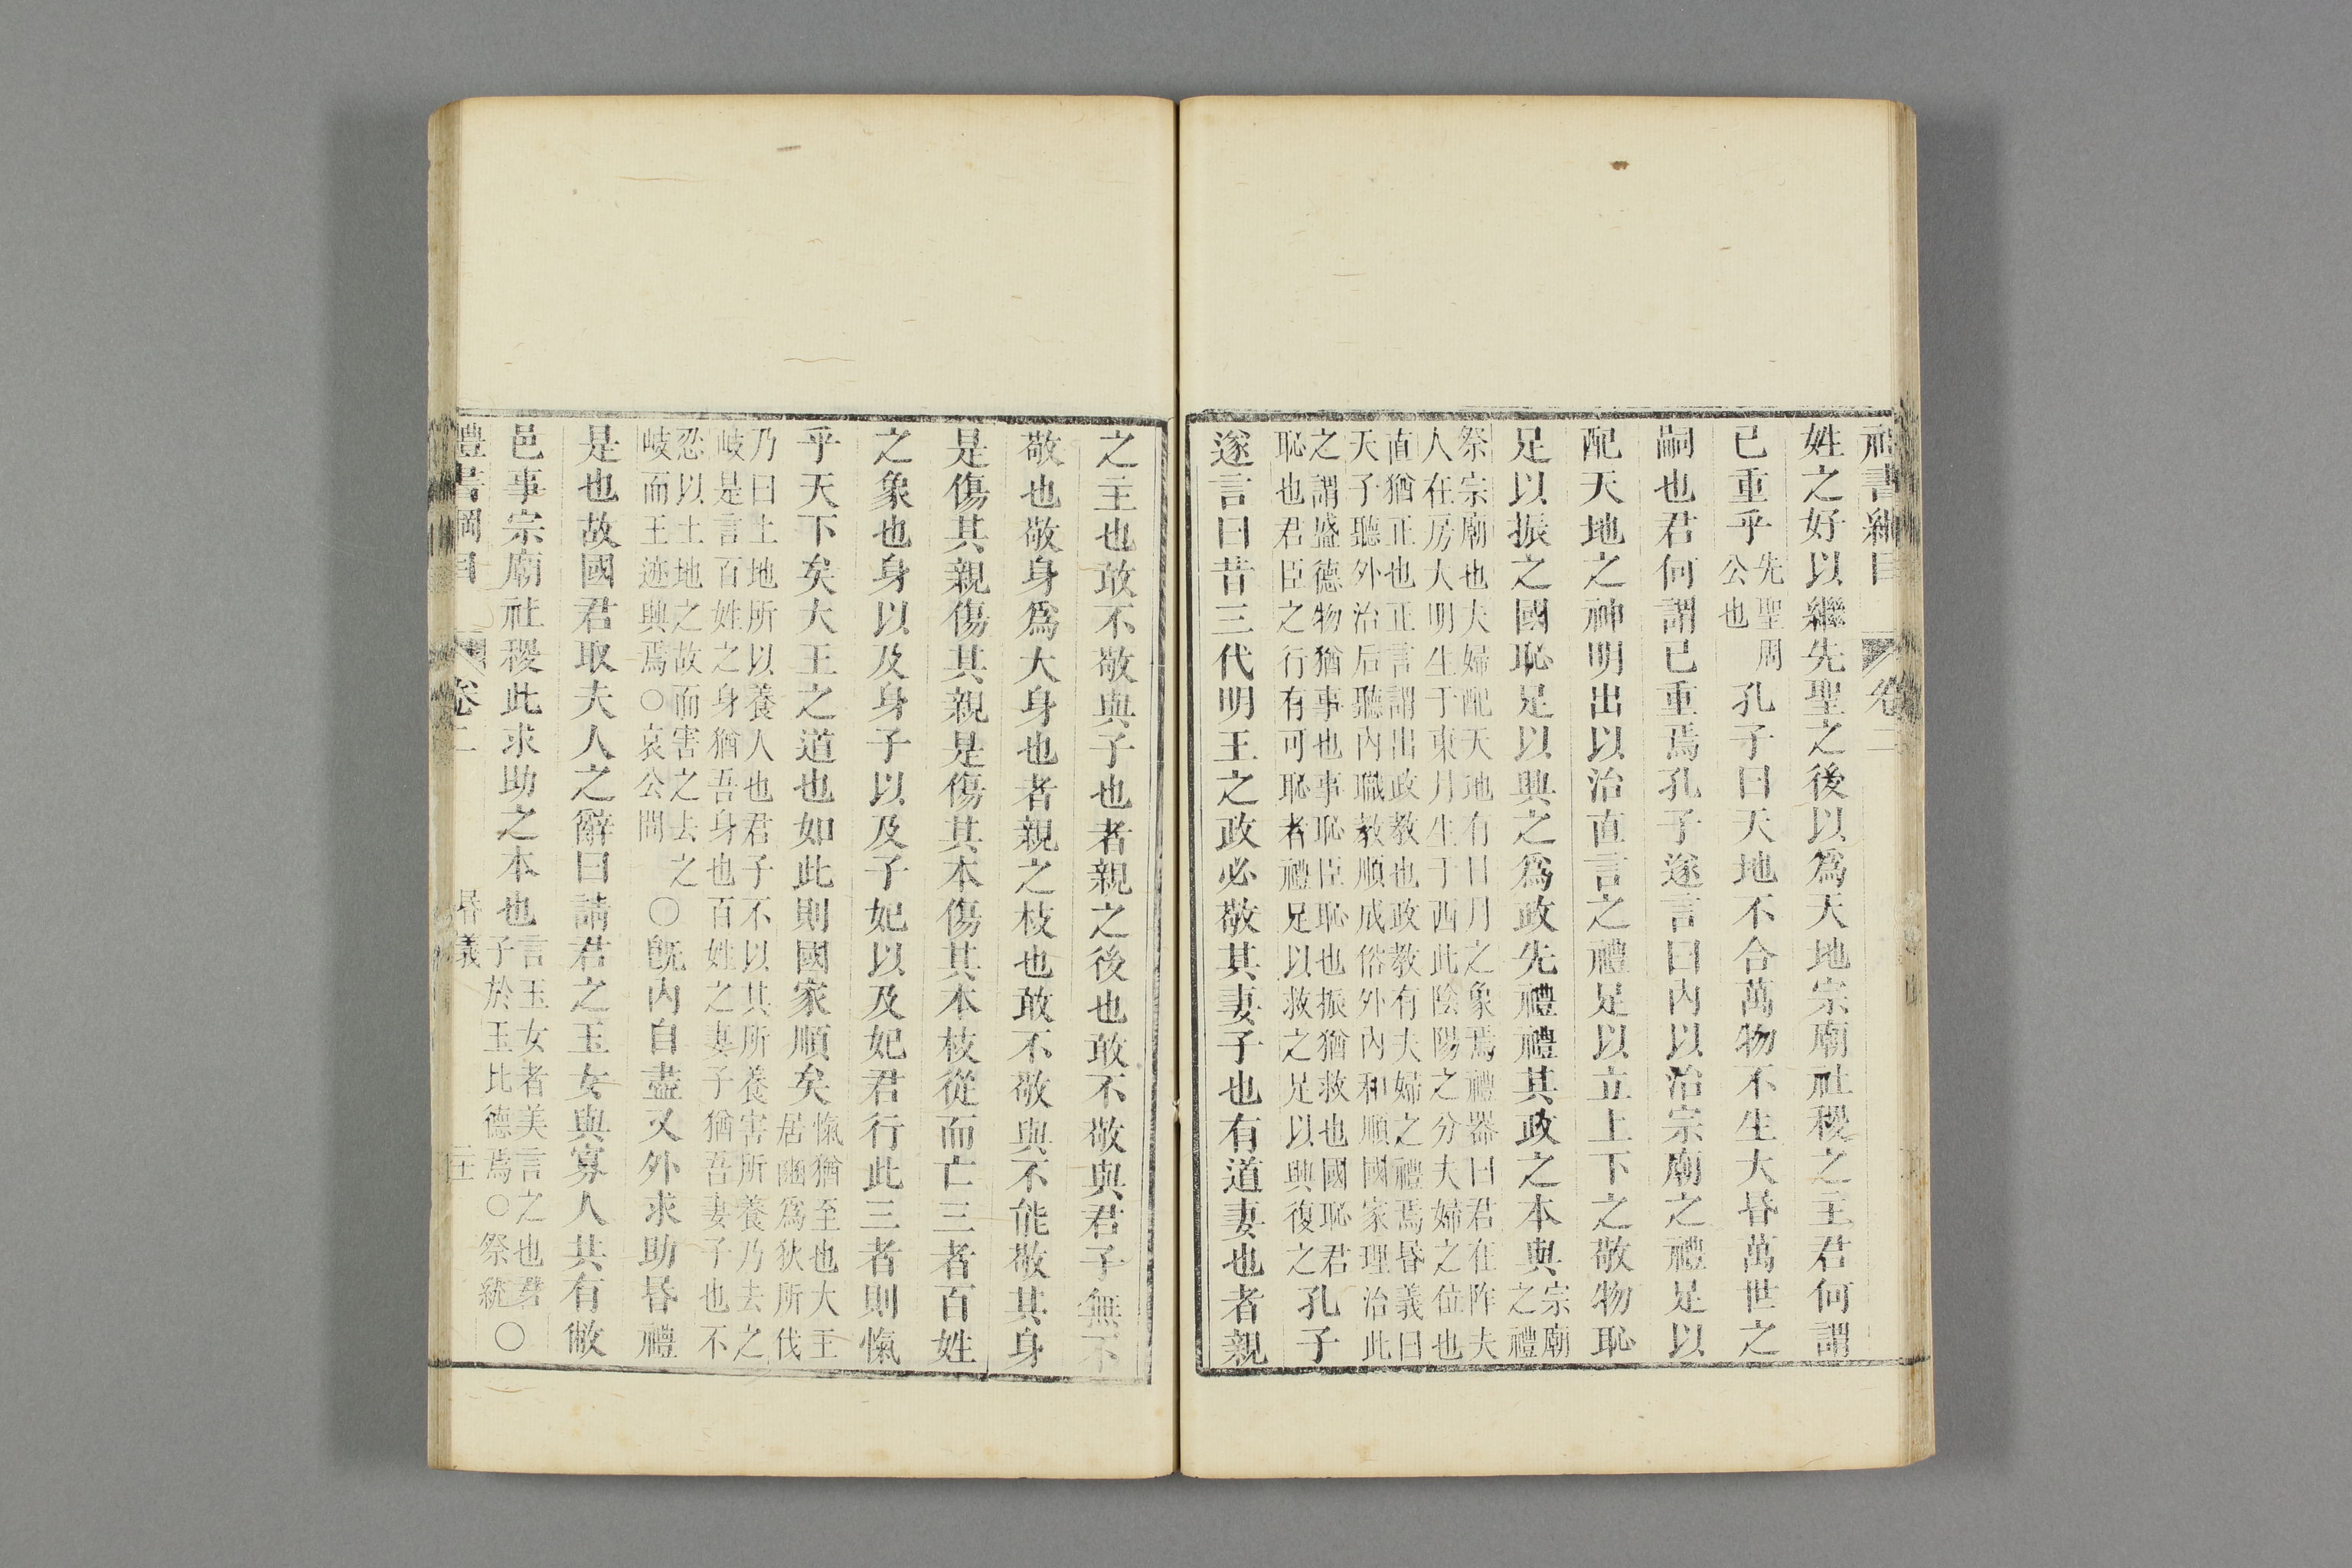 禮書綱目 卷二
姓之好以繼先聖之後以爲天地宗廟社稷之主君何謂
已重乎先聖周公也孔子曰天地不合萬物不生大昏萬世之
嗣也君何謂已重焉孔子遂言曰內以治宗廟之禮足以
配天地之神明出以治直言之禮足以立上下之敬物恥
足以振之國恥足以興之爲政先禮禮其政之本與宗廟之禮
祭宗廟也夫婦配天地有日月之象焉禮器曰君在阼夫
人在房大明生于東月生于西此陰陽之分夫婦之位也
直猶正也正言謂出政教也政教有夫婦之禮焉昏義曰
天子聽外治后聽內職教順成俗外內和順國家理治此
之謂盛德物猶事也事恥臣恥也振猶救也國恥君
恥也君臣之行有可恥者禮足以救之足以興復之孔子
遂言曰昔三代明王之政必敬其妻子也有道妻也者親
之主也敢不敬與子也者親之後也敢不敬與君子無不
敬也敬身爲大身也者親之枝也敢不敬與不能敬其身
是傷其親傷其親是傷其本傷其本枝從而亡三者百姓
之象也身以及身子以及子妃以及妃君行此三者則愾
乎天下矣大王之道也如此則國家順矣愾猶至也大王居豳爲狄所伐
乃曰土地所以養人也君子不以其所養害所養乃去之
岐是言百姓之身猶吾身也百姓之妻子猶吾妻子也不
忍以土地之故而害之去之
岐而王迹興焉○哀公問○旣內自盡又外求助昏禮
是也故國君取夫人之辭曰請君之玉女與寡人共有敝
邑事宗廟社稷此求助之本也言玉女者美言之也君子於玉比德焉○祭統○
禮書綱目 卷二 昏義